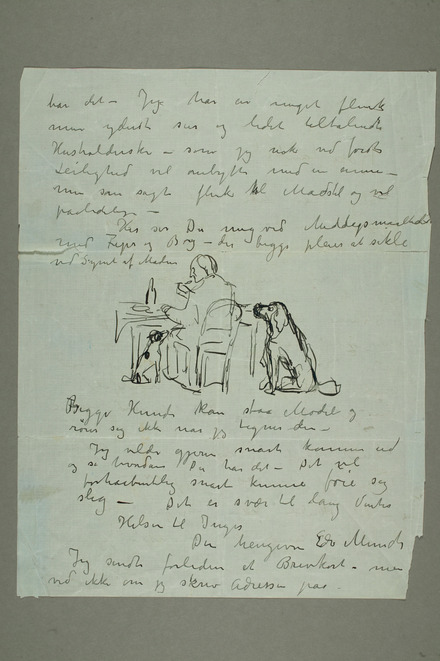 har det – Jeg har en meget flink
men yderst sur og lidet tiltalende
Husholderske – som jeg nok ved første
Leilighed vil ombytte med en anden –
men som sagt flink til Madstel og
Her ser Du mig ved Middagsmaaltidet
med og Boy – der begge pleier at sikle
ved Synet af Maden
Begge Hunde kan staa Model og
rører sig ikke naar jeg tegner dem –
Jeg vilde gjerne snart komme ud
og se hvordan Du har det – Det vil
forhaabentlig snart kunne føie sig
slig – Det er svær til lang Vinter
Hilsen til Inger
Din hengivne Edv Munch
Jeg sendte forleden et Brevkort – men
ved ikke om jeg skrev Adressen paa –